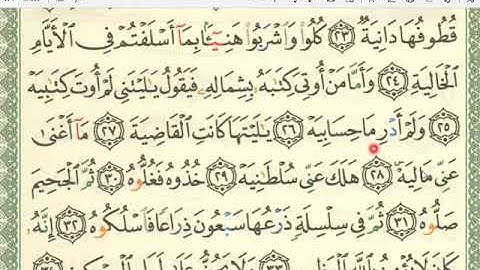 قُطُوفُهَا دَانِيَةٌ ٢٣ كُلُوا۟ وَٱشْرَبُوا۟ هَنِيٓـًٔۢا بِمَآ أَسْلَفْتُمْ فِى ٱلْأَيَّامِ
ٱلْخَالِيَةِ ٢٤ وَأَمَّا مَنْ أُوتِىَ كِتَٰبَهُۥ بِشِمَالِهِۦ فَيَقُولُ يَٰلَيْتَنِى لَمْ أُوتَ كِتَٰبِيَهْ
٢٥ وَلَمْ أَدْرِ مَا حِسَابِيَهْ ٢٦ يَٰلَيْتَهَا كَانَتِ ٱلْقَاضِيَةَ ٢٧ مَآ أَغْنَىٰ
عَنِّى مَالِيَهْ ٢٨ هَلَكَ عَنِّى سُلْطَٰنِيَهْ ٢٩ خُذُوهُ فَغُلُّوهُ ٣٠ ثُمَّ ٱلْجَحِيمَ
صَلُّوهُ ٣١ ثُمَّ فِى سِلْسِلَةٍ ذَرْعُهَا سَبْعُونَ ذِرَاعًا فَٱسْلُكُوهُ ٣٢ إِنَّهُۥ